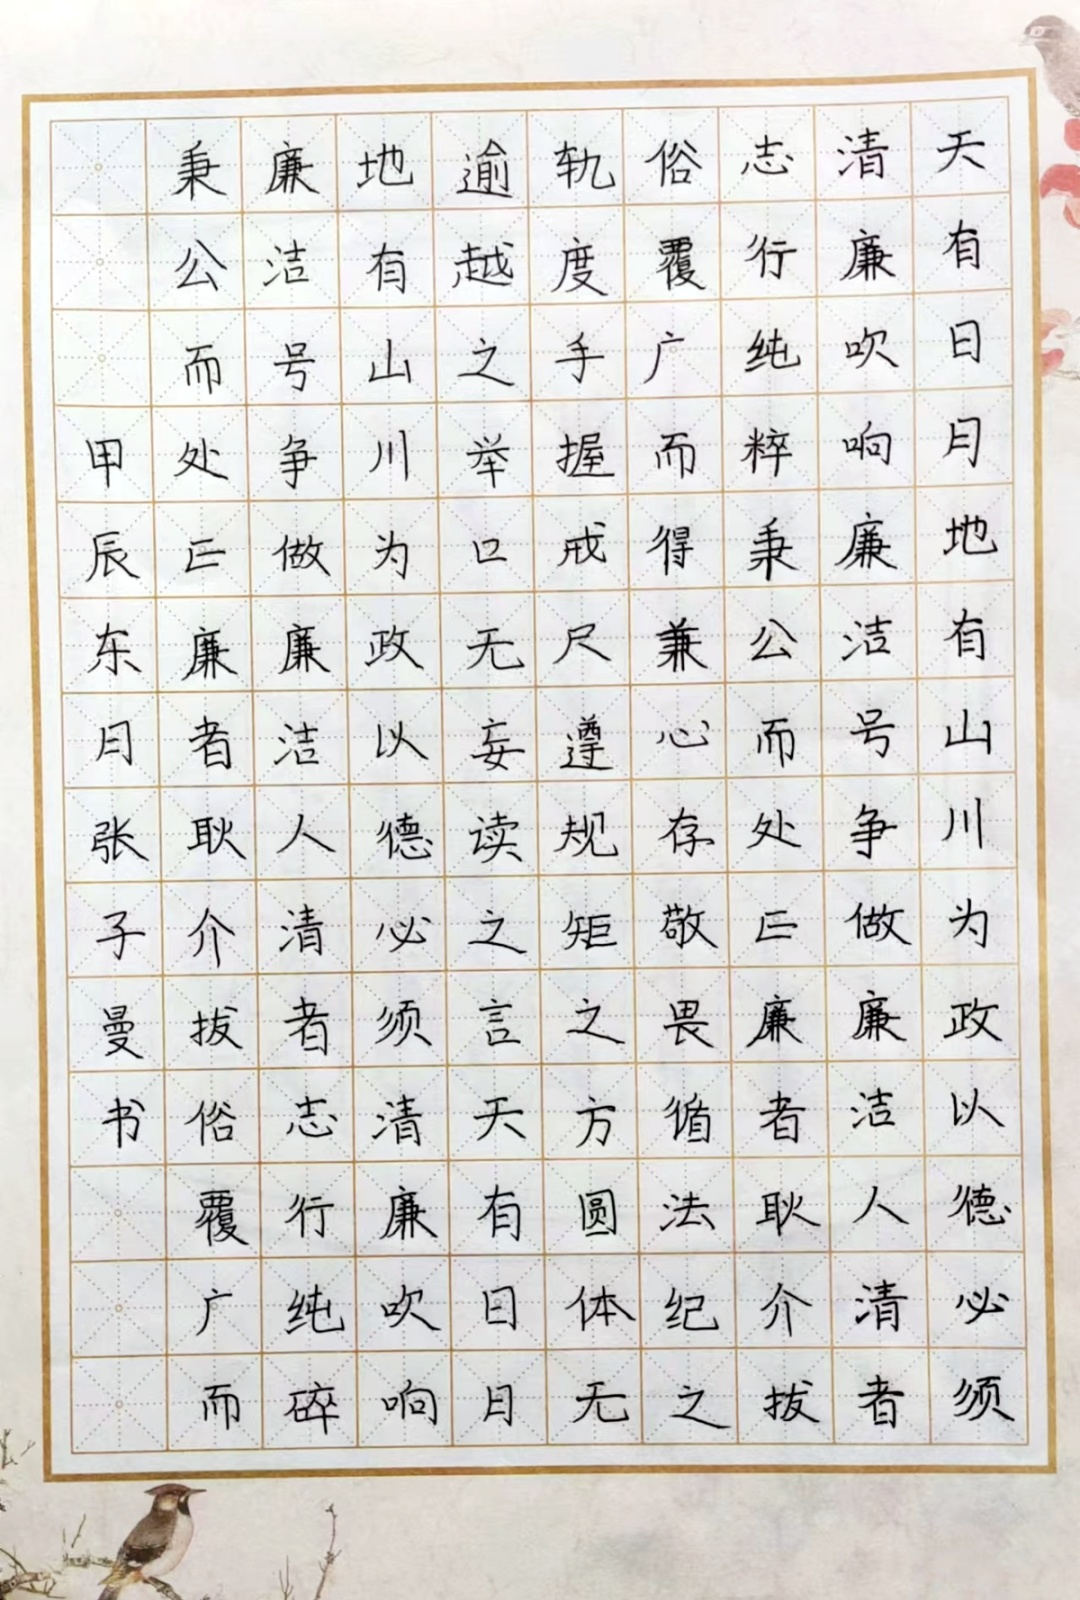 天有日月地有山川为政以德必须
清廉吹响廉洁号争做廉洁人清者
志行纯粹秉公而处正廉者耿介拔
俗覆广而得兼心存敬畏循法纪之
轨度手握戒尺遵规矩之方圆体无
逾越之举口无妄读之言天有日月
地有山川为政以德必须清廉吹响
廉洁号争做廉洁人清者志行纯碎
秉公而处正廉者耿介拔俗覆广而
甲辰东月张子曼书